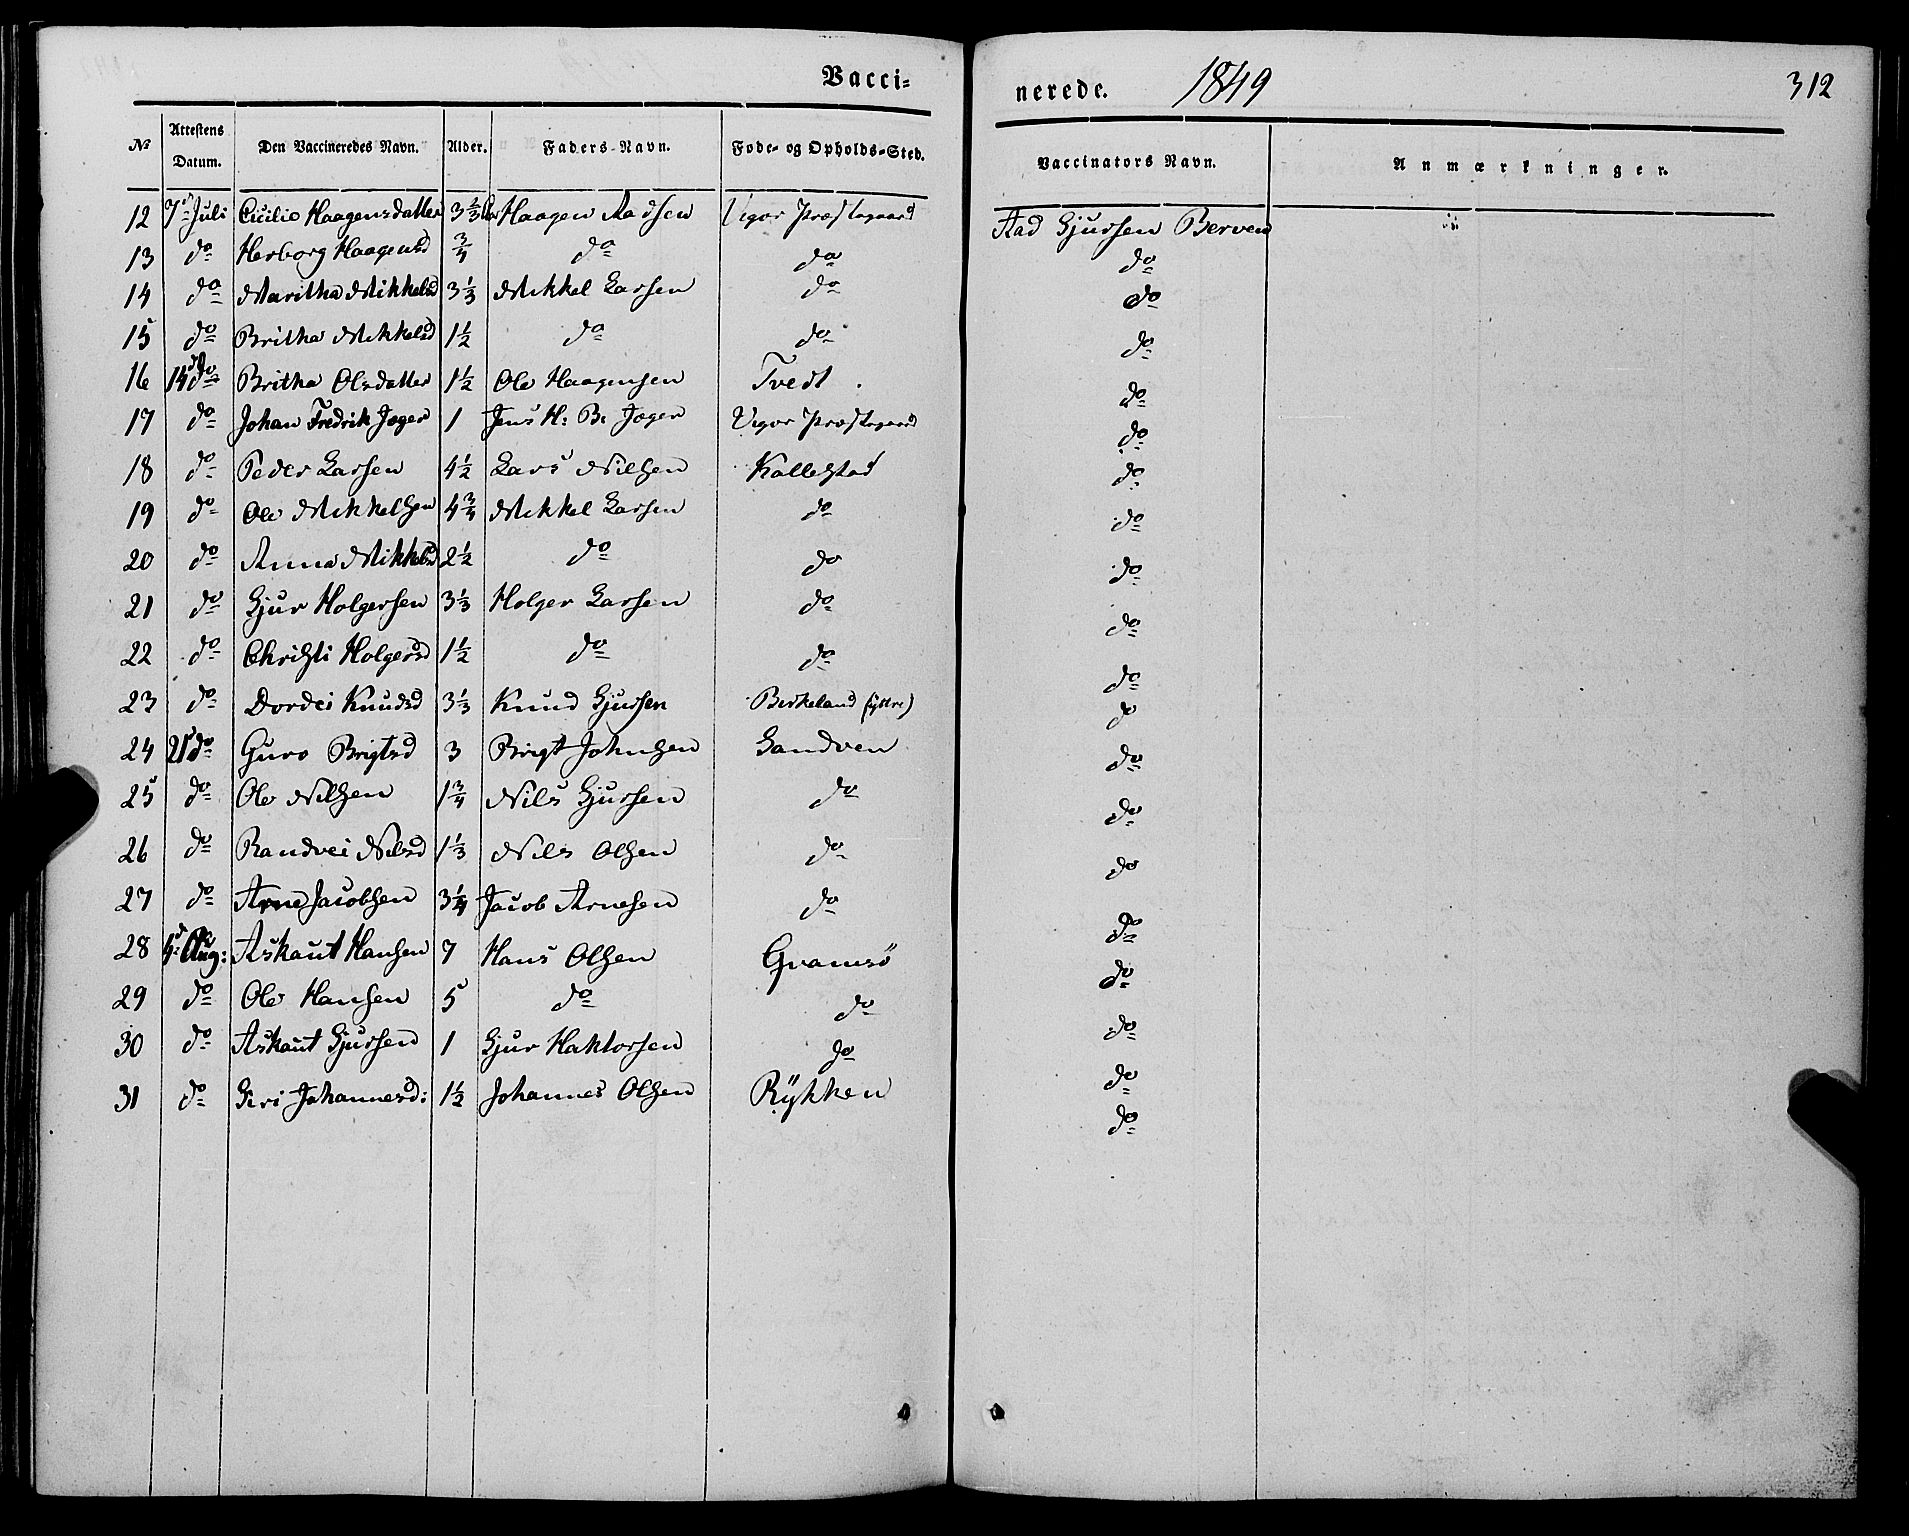 Vacci-
nerede. 1849 312
№ Attestens Datum. Den Vaccineredes Navn. Alder. Faders-Navn. Føde- og Opholds-Sted. Vaccinators Navn. Anmærkninger.
12 7 Juli Cicilie Haagensdatter 3 1/3 Haagen Aadsen Vigør Præstegaard Aad Gjursen Berven
13 do Herborg Haagensd 3/4 do do do
14 do Maritha Mikkelsd 3 1/3 Mikkel Larsen do do
15 do Britha Mikkelsd 1 1/2 do do do
16 14 do Britha Olsdatter 1 1/2 Ole Haagensen Tvedt do
17 do Johan Fredrik Jæger 1 Jens H: B: Jæger Vigør Præstegaard do
18 do Peder Larsen 4 1/2 Lars Nilsen Kallestad do
19 do Ole Mikkelsen 4 3/4 Mikkel Larsen do do
20 do Anna Mikkelsd 2 1/2 do do do
21 do Gjur Holgersen 3 1/3 Holger Larsen do do
22 do Christi Holgersd 1 1/2 do do do
23 do Dordei Knudsd 3 1/3 Knud Gjursen Birkeland (yttre) do
24 21 do Guro Brigtsd 3 Brigt Johnsen Sandven do
25 do Ole Nilsen 1 3/4 Nils Gjursen do do
26 do Randvei Nilsd 1 1/3 Nils Olsen do do
27 do Arne Jacobsen 3 1/4 Jacob Arnesen do do
28 4 Aug: Askaut Hansen 7 Hans Olsen Qvamsö do
29 do Ole Hansen 5 do do do
30 do Askaut Gjursen 1 Gjur Haktorsen do do
31 do Siri Johannesd: 1 1/2 Johannes Olsen Rykken do